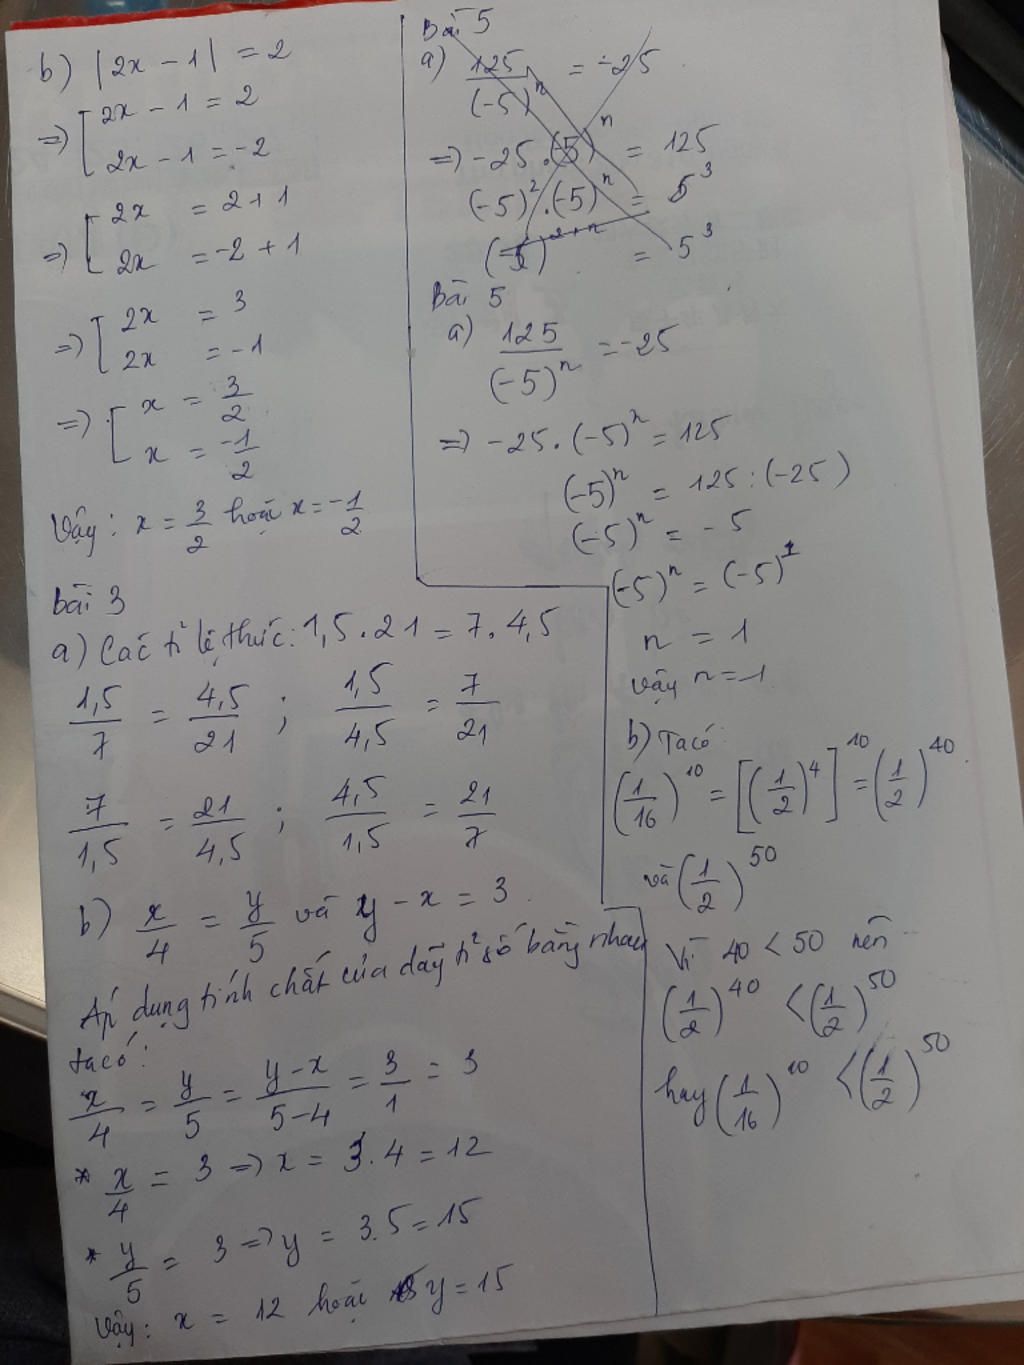 b) |2x - 1| = 2
=> [ 2x - 1 = 2
2x - 1 = -2
=> [ 2x = 2 + 1
2x = -2 + 1
=> [ 2x = 3
2x = -1
=> [ x = 3/2
x = -1/2
Vậy : x = 3/2 hoặc x = -1/2
bài 3
a) Các tỉ lệ thức: 1,5 . 21 = 7 . 4,5
1,5/7 = 4,5/21 ; 1,5/4,5 = 7/21
7/1,5 = 21/4,5 ; 4,5/1,5 = 21/7
b) x/4 = y/5 và y - x = 3
Áp dụng tính chất của dãy tỉ số bằng nhau
ta có :
x/4 = y/5 = (y-x)/(5-4) = 3/1 = 3
* x/4 = 3 => x = 3.4 = 12
* y/5 = 3 => y = 3.5 = 15
Vậy : x = 12 hoặc y = 15
Bài 5
a) 125/(-5)^n = -25
=> -25 . (5)^n = 125
(-5)^2 . (-5)^n = 5^3
(-5)^2+n = 5^3
Bài 5
a) 125/(-5)^n = -25
=> -25 . (-5)^n = 125
(-5)^n = 125 : (-25)
(-5)^n = -5
(-5)^n = (-5)^1
n = 1
vậy n = 1
b) Ta có :
(1/16)^10 = [(1/2)^4]^10 = (1/2)^40
và (1/2)^50
Vì 40 < 50 nên
(1/2)^40 < (1/2)^50
hay (1/16)^10 < (1/2)^50